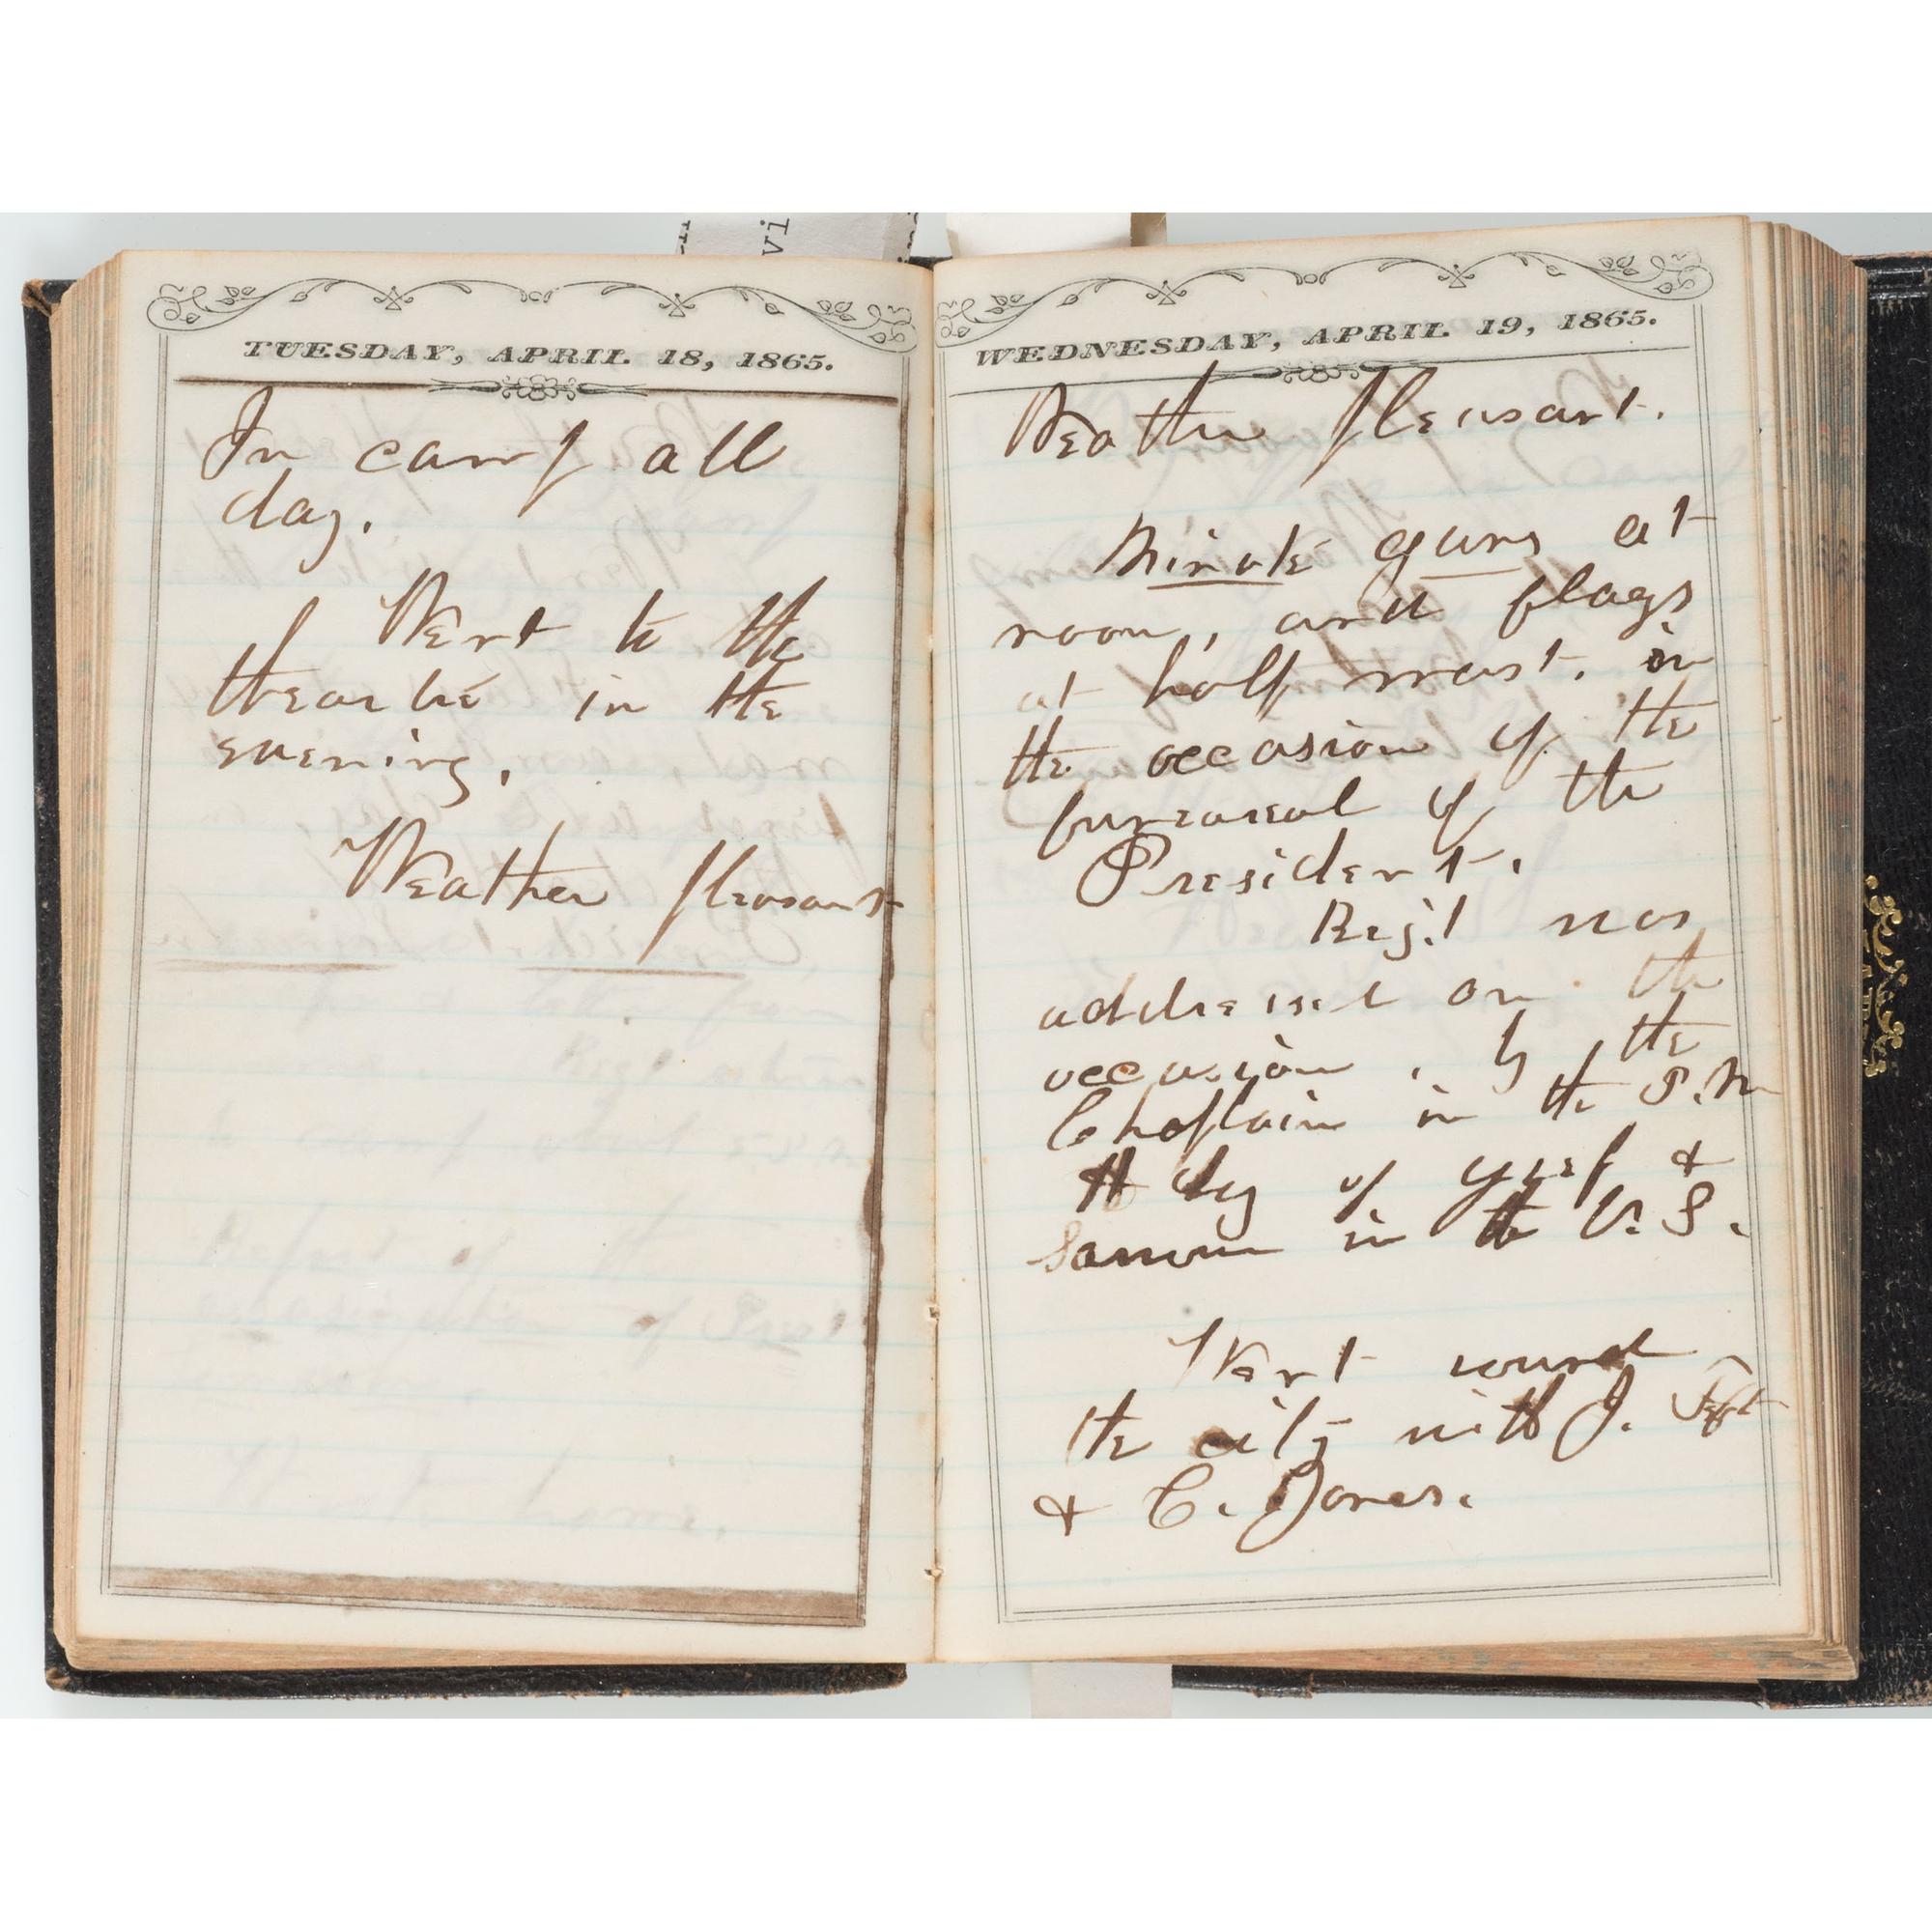 vi
TUESDAY, APRIL 18, 1865.
In camp all
day.
Went to the
theartre in the
evening.
Weather pleasant
WEDNESDAY, APRIL 19, 1865.
Weather pleasant.
Minute guns at
noon, and flags
at half mast. on
the occasion of the
funearal of the
President.
Regt was
addressed on the
occasion, by the
Chaplain in the P.M
A day of grief &
Sorrow in the U.S.
Went round
the city with J. Tefft
& C. Jones.